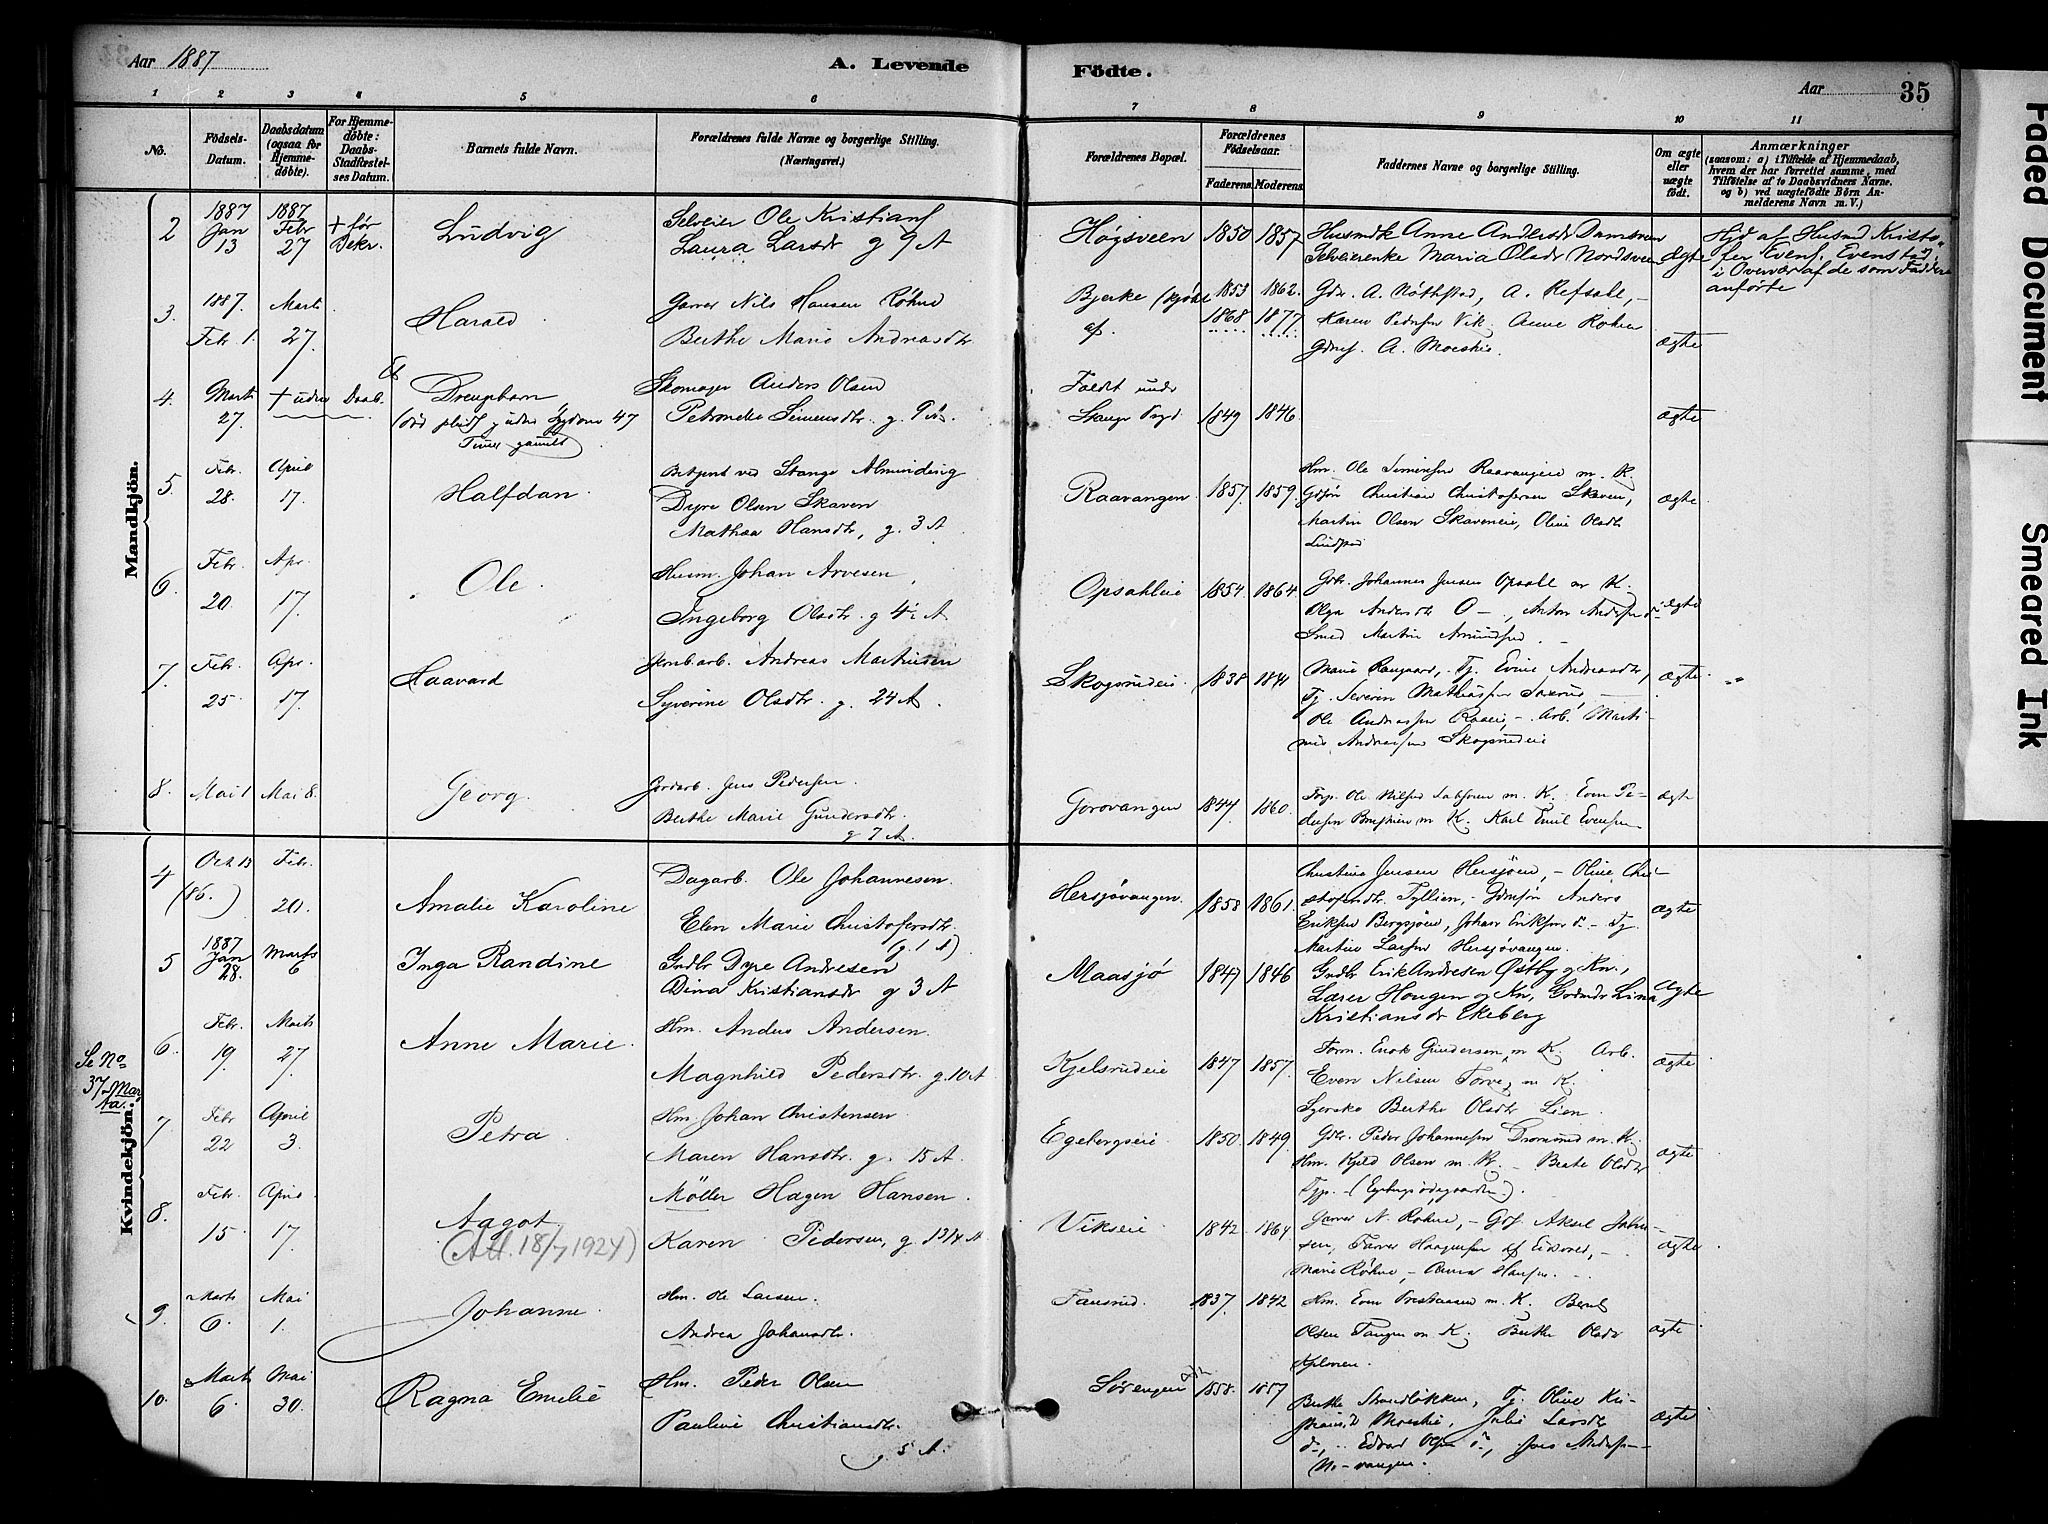 Aar 1887
A. Levende
Födte.
Aar
35
1 2 3 4 5 6 7 8 9 10 11
No.
Födsels-Datum.
Daabsdatum (ogsaa for Hjemme-döbte).
For Hjemme-döbte: Daabs-Stadfæstel-ses Datum.
Barnets fulde Navn.
Forældrenes fulde Navne og borgerlige Stilling.
(Næringsvei.)
Forældrenes Bopæl.
Forældrenes Födselsaar.
Faderens. Moderens.
Faddernes Navne og borgerlige Stilling.
Om ægte eller uægte födt.
Anmærkninger
(saasom: a) i Tilfælde af Hjemmedaab, hvem der har forrettet samme, med Tilföielse af to Daabsvidners Navne, og b) ved uægtefödte Börn An-melderens Navn m. V.)
Mandkjön.
2 1887 Jan 13 1887 Febr 27 + før Bekr. Ludvig
Selveier Ole Kristians
Laura Larsdr g 9 A
Høgsveen 1850 1857
Husmdk Anne Andersdr Damsveen
Selveierenke Maria Olsdr Nordsveen
ægte
Hjd af Husmd Kristo-
fer Evens. Evenstad,
i Overvær af de som Faddere
anførte
3. 1887. Febr 1. Marts 27. Harald
Garver Nils Hansen Røhne
Berthe Marie Andreasdtr
Bjerke 1853 1862.
af. 1868 1877.
Gdr. A. Nøthstad, A. Refsahl,
Karen Pedersen Vik. Anne Rohne
A. Moeshie.
ægte
4. Marts 27. + uden Daab. Drengebarn
47
Timer gammel)
Skomager Anders Olsen
Petronelle Simensdtr. g.
Fødet under
Stange Prgd 1849 1846.
ægte
5. Febr. 28. April 17. Halfdan.
Betjent ved Stange Almindning
Dyre Olsen Skaven
Mathea Hansdtr, g. 3 A
Raavangen. 1857. 1859.
Hm. Ole Simensen Raavangeie m. K.
Gdsøn Christian Christofersen Skaven,
Martin Olsen Skaveneie, Oline Olsdtr
Lindstad
ægte
6. Febr. 20. Apr. 17. Ole.
Husm. Johan Arvesen,
Ingeborg Olsdtr. g 4½ A
Opsahleie 1854. 1864.
Gdr. Johannes Jensen Opsahl m K.
Olga Andersdtr O –, Anton Andersen
Smed Martin Amundsen. –
ægte
7. Febr. 25. Apr. 17. Haavard
Jernb.arb. Andreas Martinsen
Syverine Olsdtr. g. 24 A.
Skogsrudeie. 1838 1841
Marie Ramgaard, Tj. Evine Andreasdtr,
Tj. Severin Mathiassen Saxrud, –
Ole Andreassen Raaeie, – Arb. Marti-
nus Andreassen Skogsrudeie
ægte. "
8. Mai 1 Mai 8. Georg.
Jordarb. Jens Pedersen.
Berthe Marie Gundersdtr.
g 7 A.
Gorovangen 1844. 1860.
Ole m. K. Even Pe-
dersen m K. Karl Emil Evensen
ægte
Kvindekjön.
Se No
37 Mar
ta.
4 Oct. 13 (86.) Febr. 20. Amalie Karoline
Dagarb. Ole Johannesen.
Elen Marie Christofersdtr.
(g. 1 A)
Hersjøvangen. 1858 1861.
Christine Jensen Hersjøen, – Oline Chri-
stofersdtr Tyllien, – Gdmsøn Anders
Eriksen Bergsjøen, Johan Eriksen do – Tj.
Martin Larsen Hersjøvangen.
ægte
5 1887 Jan 28. Marts 6 Inga Randine
Grdbr Dyre Andresen
Dina Kristiansdr g 3 A
Maasjø 1847 1846
Grdbr Erik Andresen Østby og Kn.,
Lærer Hougen og Kn, Grdmdr Lina
Kristiansdr Ekeberg
ægte
6. Febr. 19. Marts 27. Anne Marie.
Hm. Anders Andersen.
Magnhild Pedersdtr. g. 10 A
Kjelsrudeie 1847 1857.
Form. Enok Gundersen m K. Arb.
Even Nilsen Torve, m K.
Syerske Berthe Olsdtr Lien.
ægte
7 Febr 22 April 3. Petra.
Hm. Johan Christensen.
Maren Hansdtr. g. 15 A.
Egebergseie. 1850. 1849.
Gdbr. Peder Johannesen Dromsrud m. K.
Hm. Kjeld Olsen m. K. – Beate Olsdtr
(Egebergsødegaarden).
ægte
8. Febr. 15. April 17. Aagot.
(Att. 18/7 1924)
Møller Hagen Hansen.
Karen Pedersen, g. 13/4 A
Vikseie 1842. 1864
Garver N. Røhne, –
Marie Røhne, – Anna Hansen. –
ægte
9. Marts 6. Mai 1. Johanne.
Hm. Ole Larsen.
Andrea Johansdtr.
Fausrud. 1837. 1842
Hm. Even m. K. Bernt
Olsen Tangen m K. Berthe Olsdr
ægte
10. Marts 6. Mai 30. Ragna Emelie
Hm. Peder Olsen
Pauline Christiansdtr.
g. 5 A.
Sørengen 1858. 1857
Berthe Strandløkken, Tj. Oline Kri-
stiansd Moeshie, Julie Larsdtr
do, – Edvard Olsen do, Jens Anders-
vangen.
ægte
Faded Document
Smeared Ink